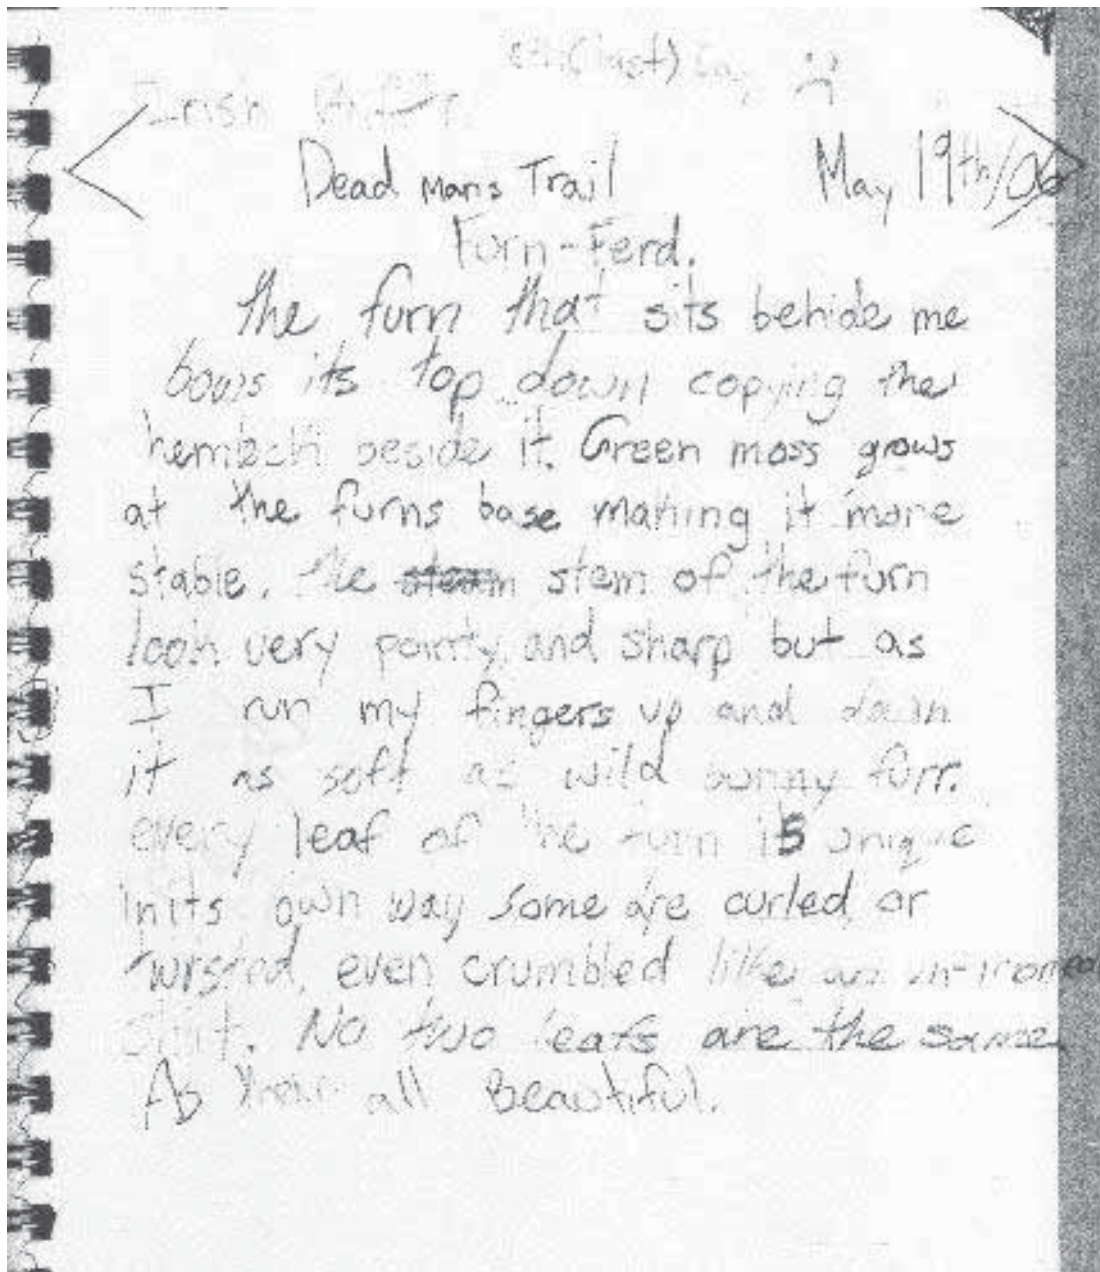 (last)
Irish
Dead mans Trail May 19th/06
Furn-Ferd.
the furn that sits behide me
bows its top down copying the
beside it. Green moss grows
at the furns base making it more
stable. the steam stem of the furn
look very pointy and sharp but as
I run my fingers up and down
it as soft as wild bunny furr.
every leaf of the furn is unique
in its own way some are curled or
twisted, even crumbled like an un-ironed
No two leafs are the same.
all Beautiful.